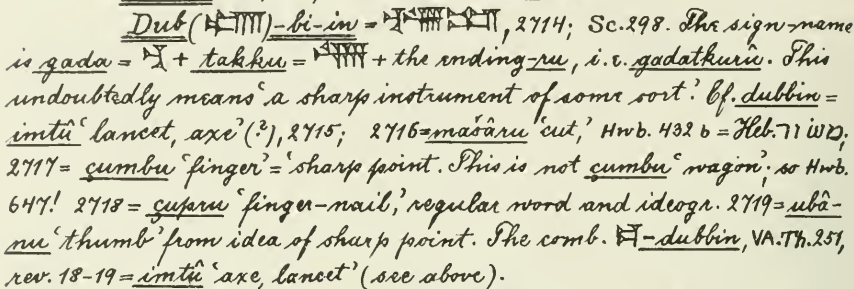 Dub()-bi-in = , 2714; Sc. 298. The sign-name
is gada = + takku = + the ending -ru, i.e. gadatkurû. This
undoubtedly means 'a sharp instrument of some sort.' Cf. dubbin =
imtû 'lancet, axe' (?), 2715; 2716 = mašâru 'cut,' Hwb. 432 b = Heb.
2717 = çumbu 'finger' = 'sharp point. This is not çumbu 'wagon'; so Hwb.
647! 2718 = çupru 'finger-nail,' regular word and ideogr. 2719 = ubâ-
nu 'thumb' from idea of sharp point. The comb. -dubbin, VA.Th. 251,
rev. 18-19 = imtû 'axe, lancet' (see above).